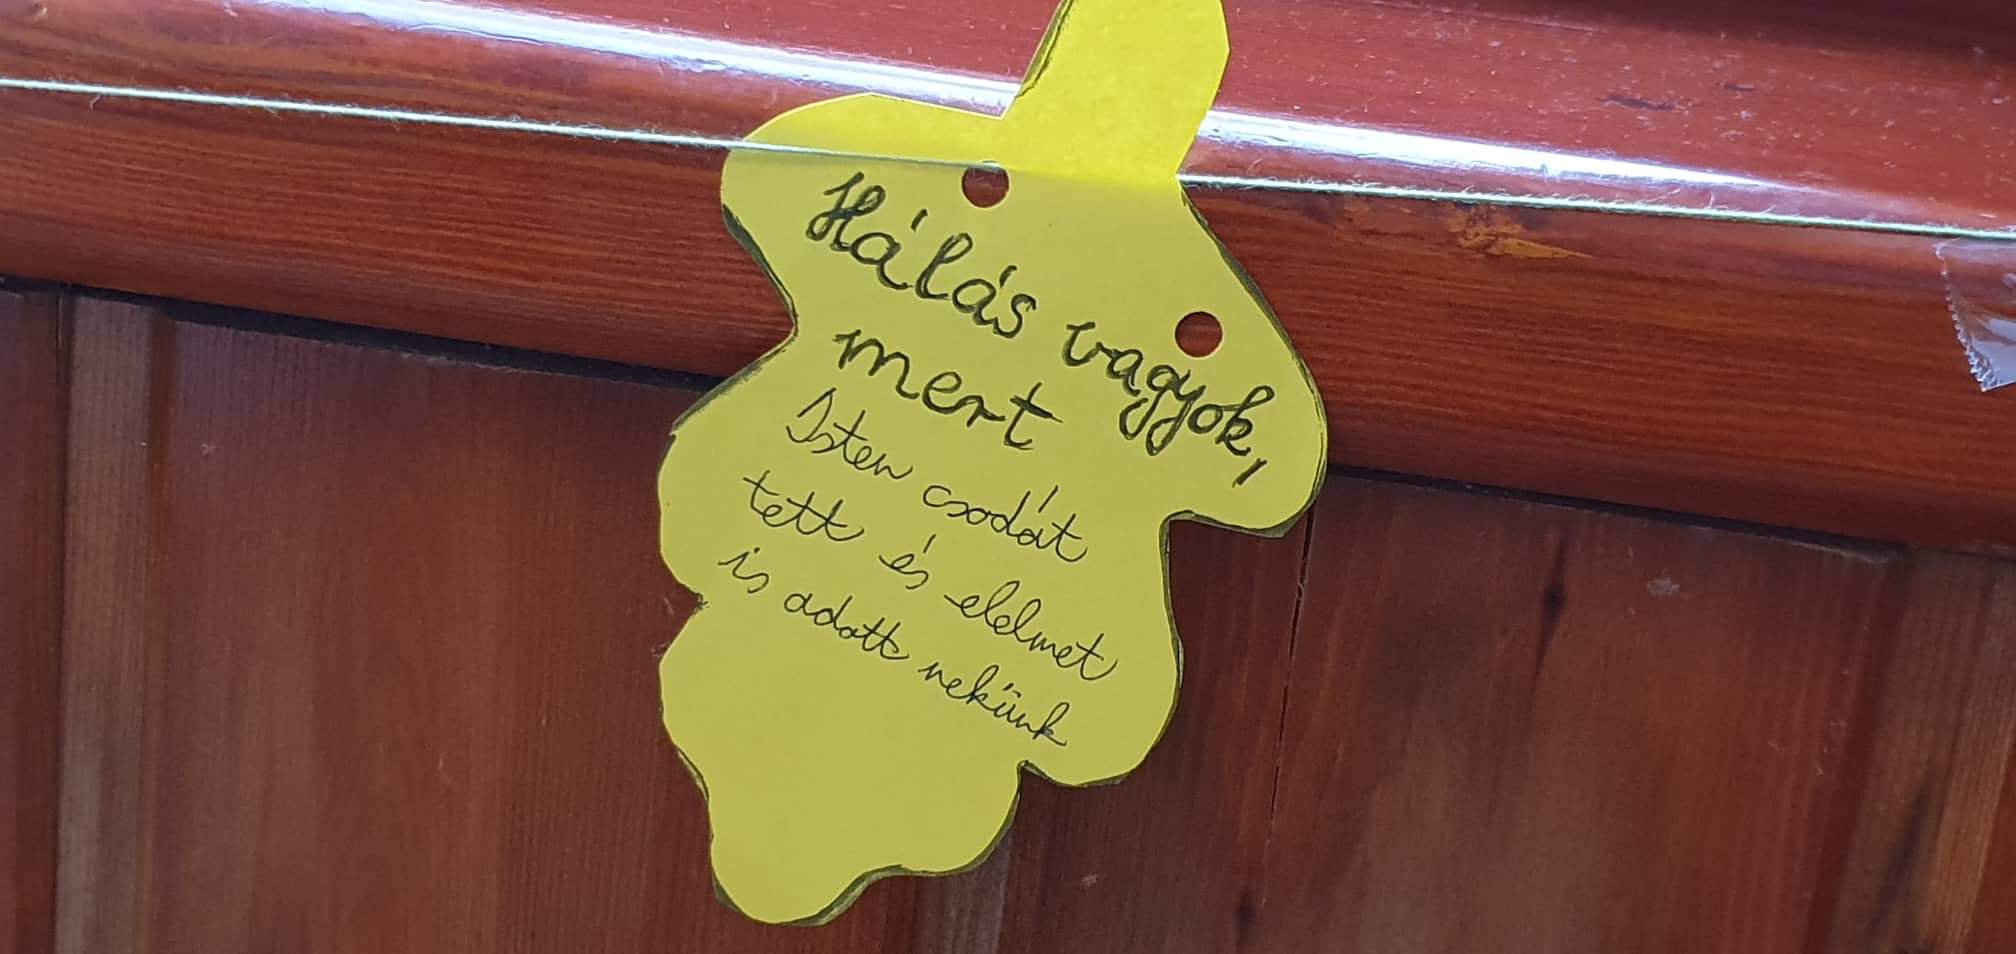 Hálás vagyok,
mert
Isten csodát
tett és elelmet
is adott nekünk